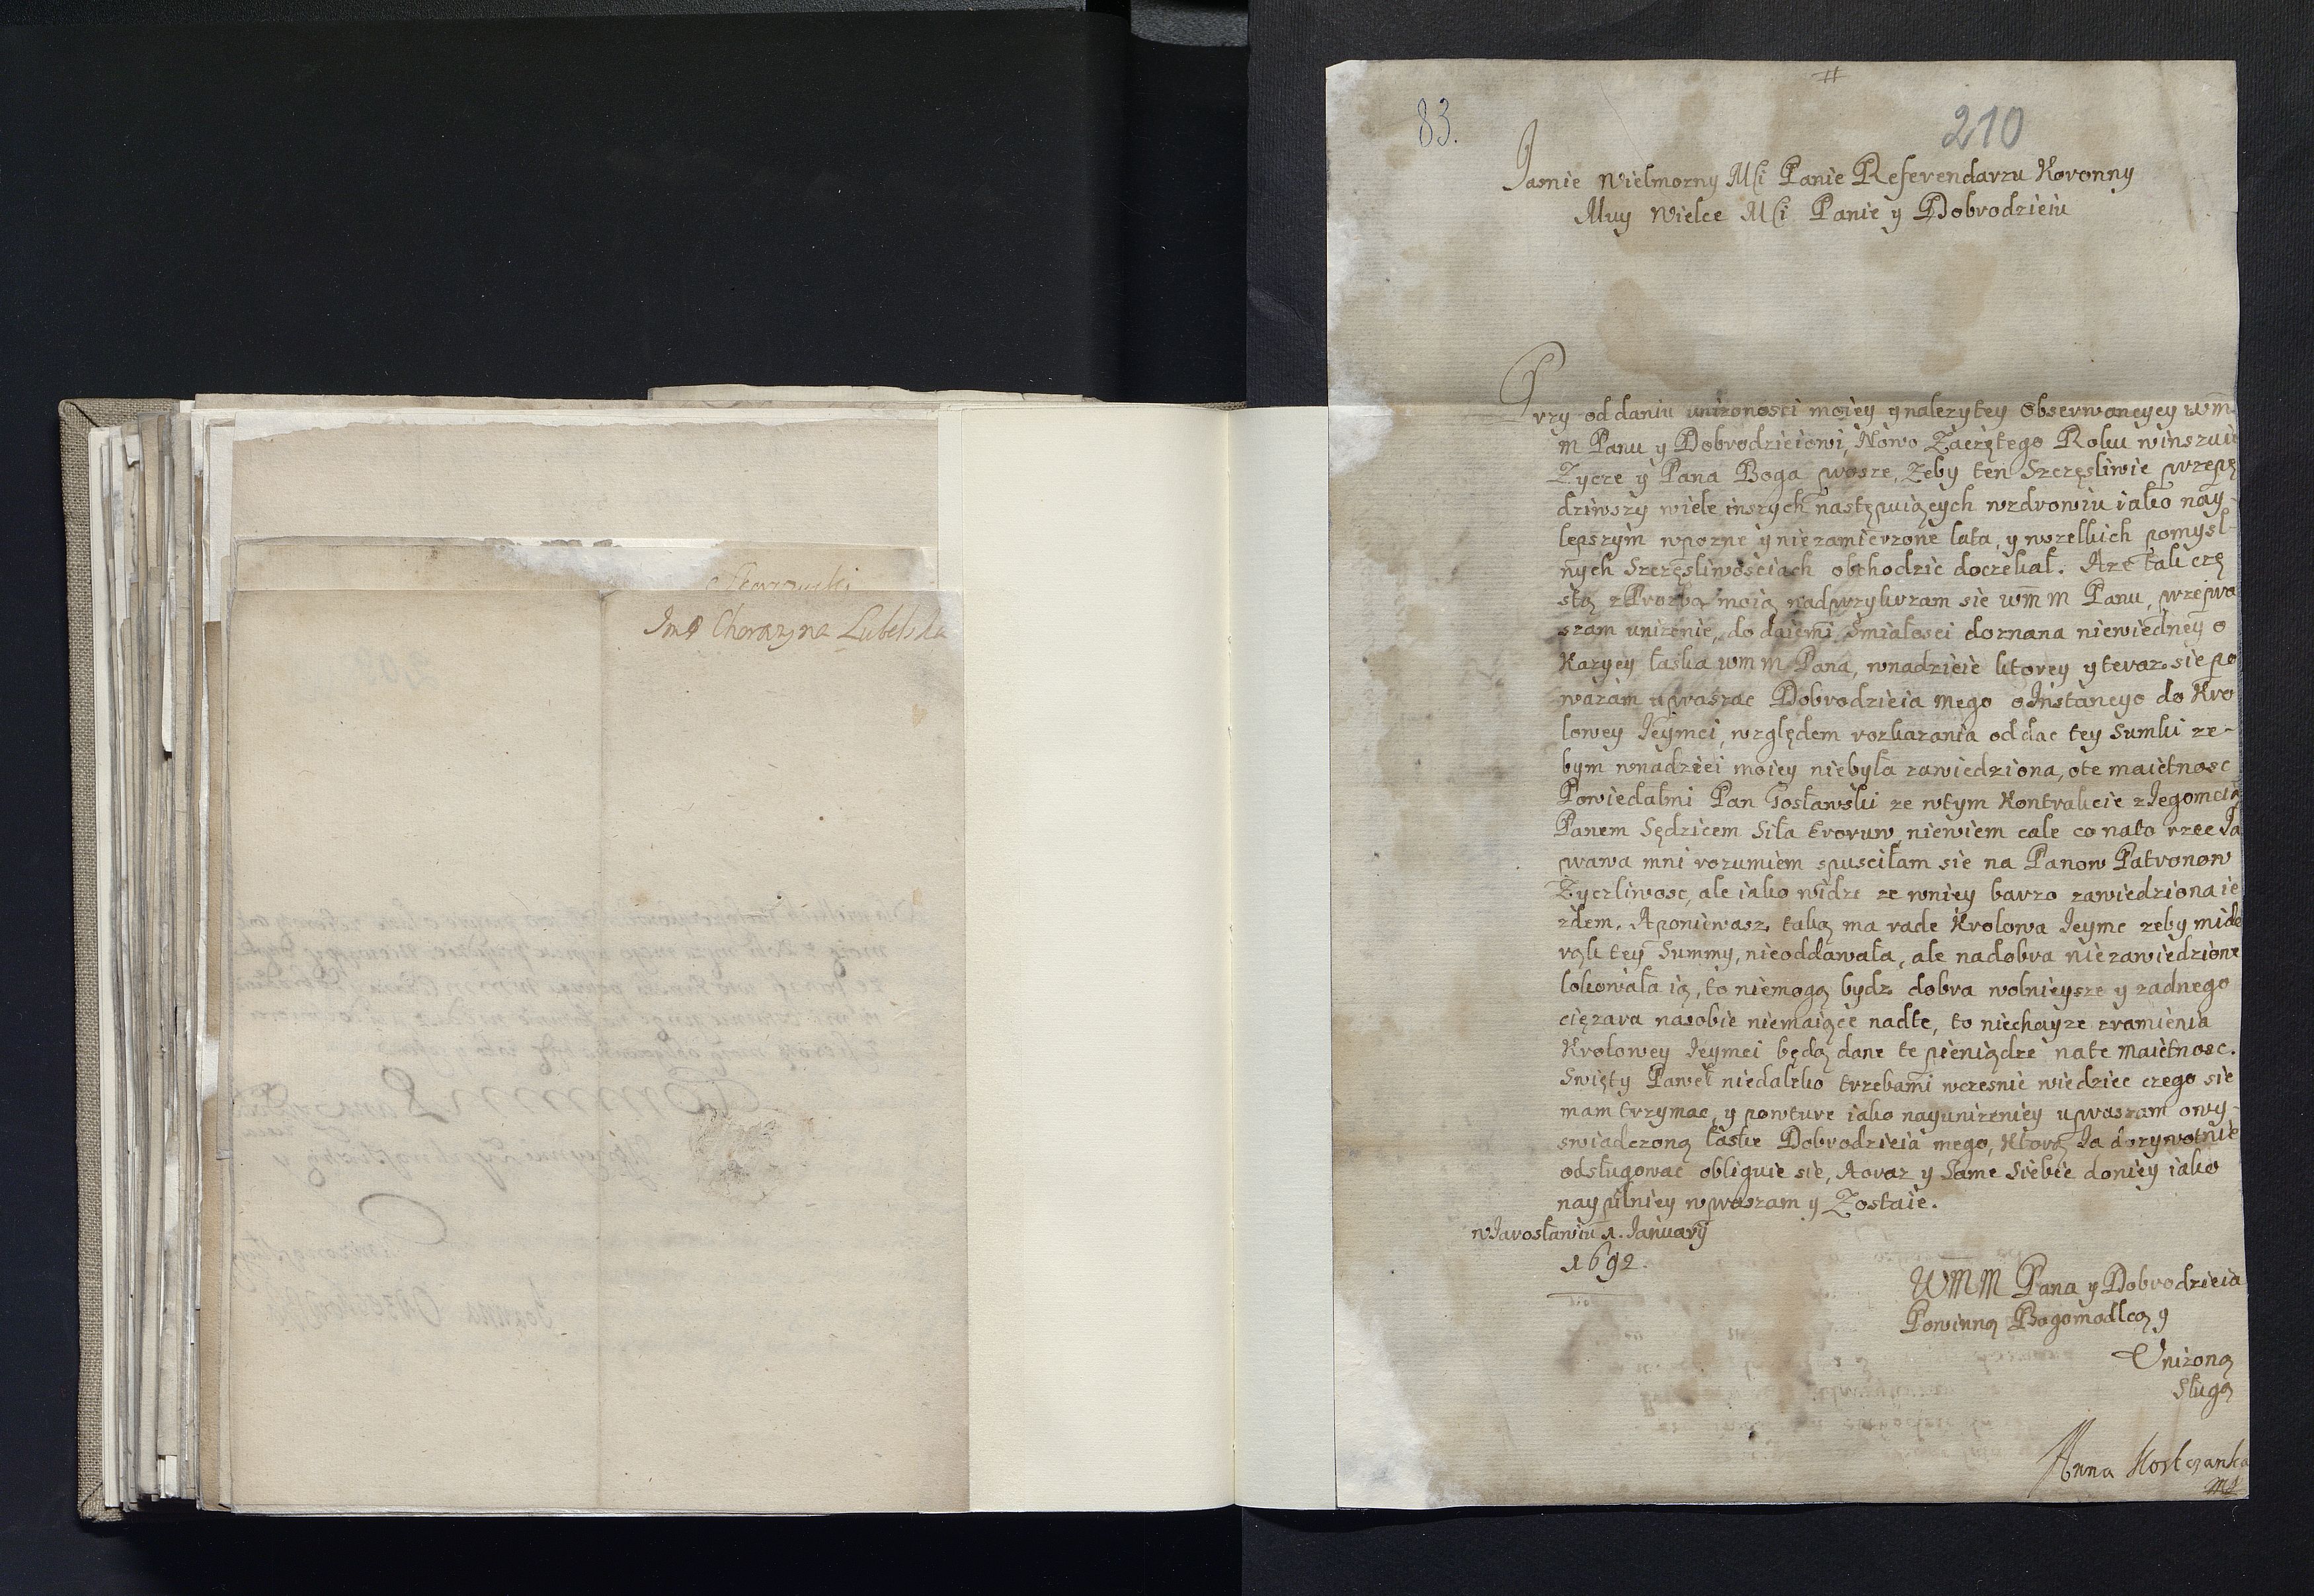 Jmć Chorązyna Lubelska
83.
210
Jasnie Wielmozny Mći Panie Referendarzu Koronny
Muy Wielce Mći Panie y Dobrodzieiu
Przy oddaniu unizonosci moiey y nalezytey Obserwancyey wm
m Panu y Dobrodzieiowi, Nowo Zaczętego Roku winszuię
Zycze y Pana Boga prosze, Zeby ten Szczęsliwie przepę
dziwszy wiele inszych następuiących wzdrowiu iako nay-
lepszym wpozne y niezamierzone lata, y wszelkich pomysl-
nych Szczęsliwosciach obchodzic doczekał. Aze tak czę
stą z Prozbą moią nadprzykrzam sie wm m Panu, przepra
szam unizenie, dodaiemi smiałosci doznana niewiedney o
Kazyey łaska wm m Pana, wnadzieie ktorey y teraz sie po
wazam upraszac Dobrodzieia mego oInstancyo do Kro
lowey Ieymci, względem rozkazania oddac tey Sumki ze-
bym wnadziei moiey niebyła zawiedziona, ote maiętnosc
Powiedałmi Pan Gosławski ze wtym Kontrakcie z Jegomcią
Panem Sędzicem Siła Erroruw, niewiem cale co nato rzec Ja
prawa mni rozumiem spusciłam sie na Panow Patronow
Zyczliwosc, ale iako widze ze wniey barzo zawiedziona ie
zdem. Aponiewasz taką ma rade Krolowa Ieymc zeby mido
rąk tey Summy, nieoddawała, ale nadobra niezawiedzione
lokowała ią, to niemogą bydz dobra wolnieysze y zadnego
cięzara nasobie niemaiące nadte, to niechayze zramienia
Krolowey Ieymci będą dane te pieniądze nate Maiętnosc.
Swięty Paweł niedaleko trzebami wczesnie wiedziec czego sie
mam trzymac, y powture iako nayunizeniey upraszam owy-
swiadczoną łaske Dobrodzieia mego, Ktorą Ja dozywotnie
odsługowac obliguie sie, Aoraz y Same Siebie doniey iako
naypilniey wpraszam y Zostaie.
wJarosławiu 1. Januarij
1692.
WMM Pana y Dobrodzieia
Powinną Bogomodlcą y
Unizoną
Sługą
Anna Kostczanka
mp